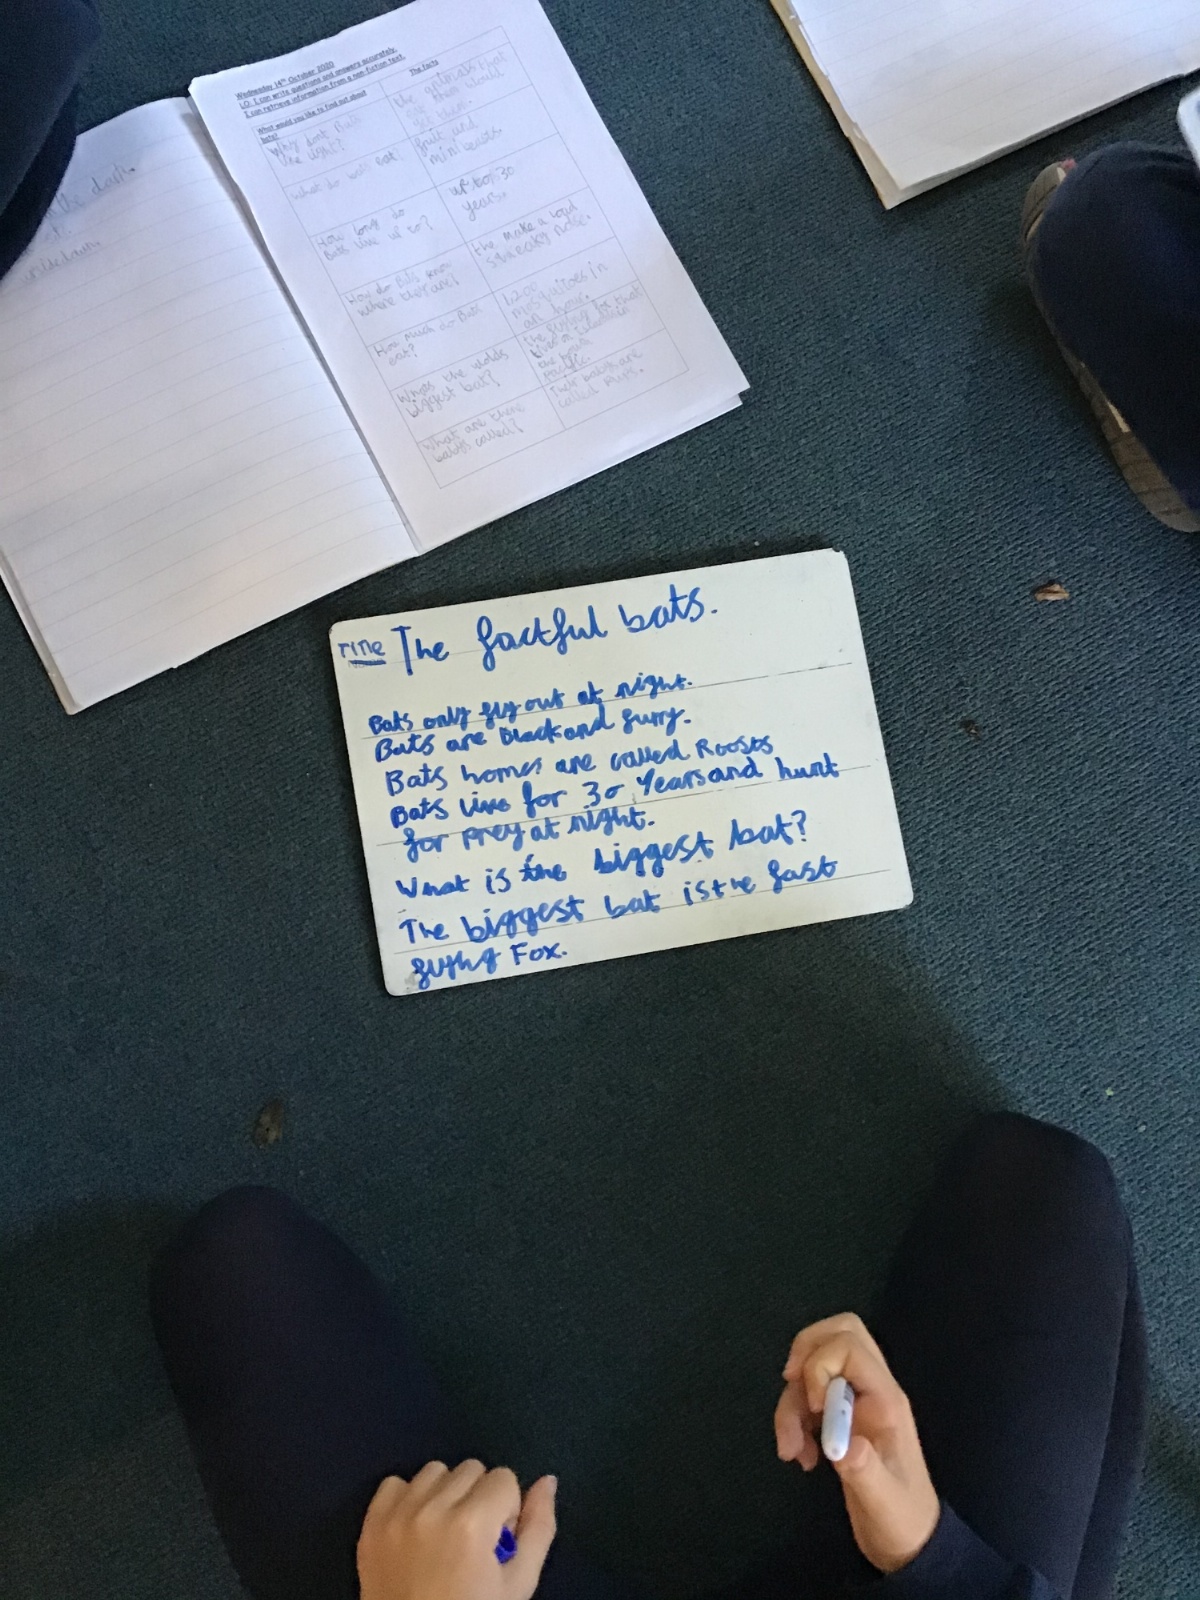 Wednesday 14th October 2020
LO: I can write questions and answers accurately.
I can retrieve information from a non-fiction text.
What would you like to find out about
bats?
The facts
Why dont Bats
like light?
the animals that
eat them would
see them.
What do bats eat?
fruit and
minibeasts.
How long do
Bats live up to?
up to 30
years.
How do Bats know
where they are?
the make a loud
squeaky noise.
How much do Bats
eat?
1,200
mosquitoes in
an hour.
Whats the worlds
biggest bat?
the flying fox that
lives in
the south
Pacific.
What are there
babys called?
Their babys are
called Pups.
the dark.
Title The factful bats.
Bats only fly out at night.
Bats are black and furry.
Bats homes are called Roosts
Bats live for 30 Years and hunt
for Prey at night.
What is the biggest bat?
The biggest bat is the fast
flying Fox.